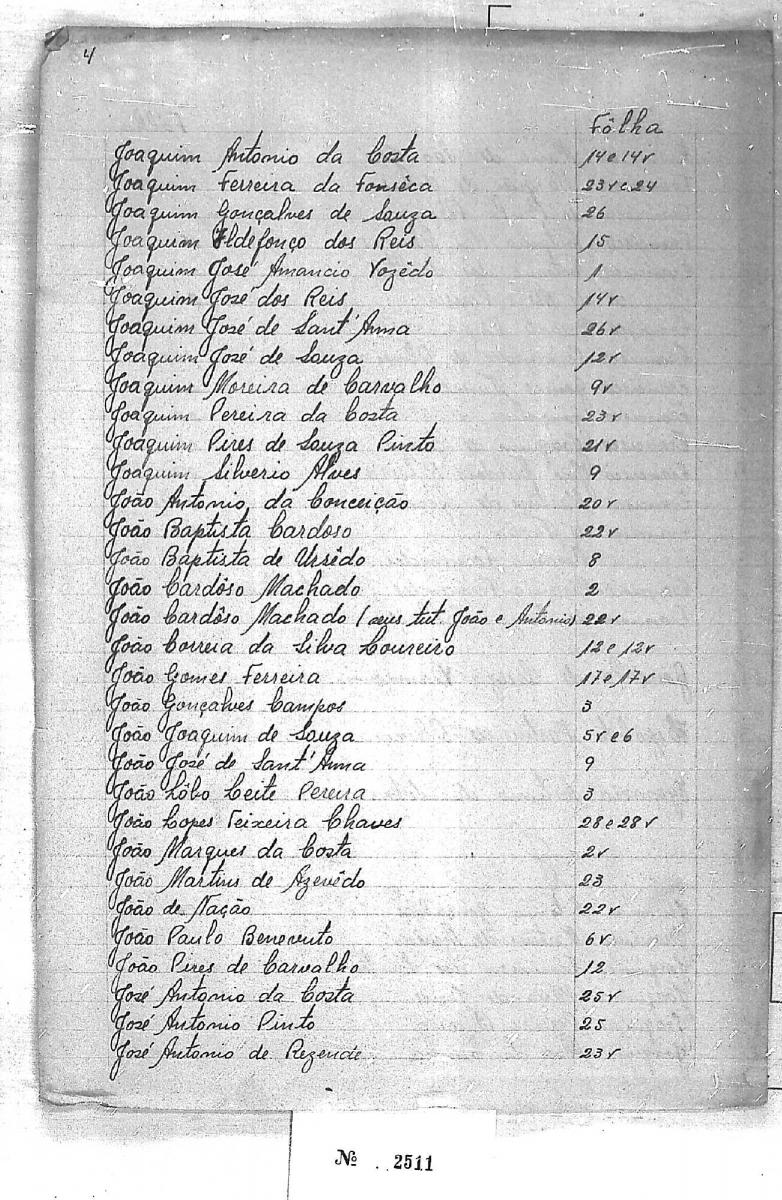 4
Fôlha
Joaquim Antonio da Costa 14 e 14v
Joaquim Ferreira da Fonsêca 23v e 24
Joaquim Gonçalves de Souza 26
Joaquim Ildefonço dos Reis 15
Joaquim José Amancio Vozêdo 1
Joaquim José dos Reis 14v
Joaquim José de Sant'Anna 26v
Joaquim José de Souza 12v
Joaquim Moreira de Carvalho 9v
Joaquim Pereira da Costa 23v
Joaquim Pires de Souza Pinto 21v
Joaquim Silverio Alves 9
João Antonio da Conceição 20v
João Baptista Cardoso 22v
João Baptista de Ursêdo 8
João Cardôso Machado 2
João Cardôso Machado (seus tut. João e Antonio) 22v
João Correia da Silva Loureiro 12 e 12v
João Gomes Ferreira 17 e 17v
João Gonçalves Campos 3
João Joaquim de Souza 5v e 6
João José de Sant'Anna 9
João Lôbo Leite Pereira 3
João Lopes Teixeira Chaves 28 e 28v
João Marques da Costa 2v
João Martins de Azevêdo 23
João de Nação 22v
João Paulo Benevuto 6v
João Pires de Carvalho 12
José Antonio da Costa 25v
José Antonio Pinto 25
José Antonio de Rezende 23v
Nº 2511